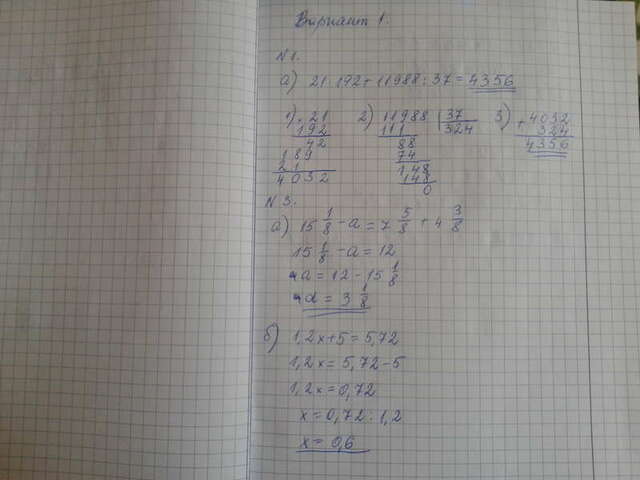 Вариант 1.
N 1.
а) 21·192+11988:37=4356
1) 21
192
42
189
21
4032
2) 11988 37
111 324
88
74
148
148
0
3) 4032
+ 324
4356
N 3.
а) 15 1/8 - а = 7 5/8 + 4 3/8
15 1/8 - а = 12
-а = 12 - 15 1/8
а = 3 1/8
б) 1,2x+5=5,72
1,2x=5,72-5
1,2x=0,72
x=0,72:1,2
x=0,6